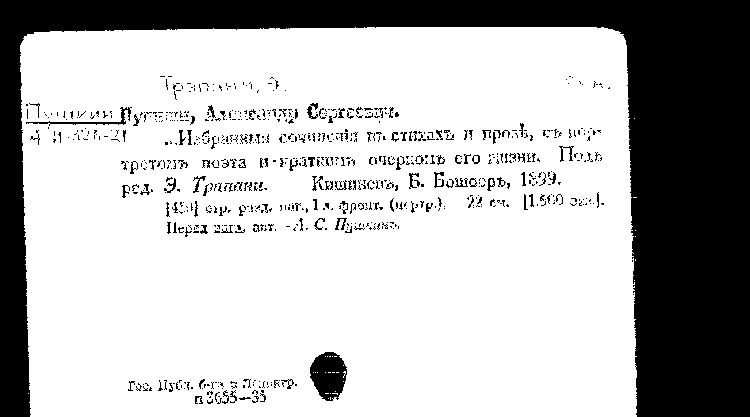 Трапани, Э.
Пушкин Пушкин, Александр Сергеевич.
...Избранныя сочиненія въ стихахъ и прозѣ, съ пор-
третомъ поэта и краткимъ очеркомъ его жизни. Подъ
ред. Э. Трапани. Кишиневъ, Б. Бошверъ, 1899.
стр. разд. паг., 1 л. фронт. (портр.). 22 см. [1.500 экз.].
Перед загл. авт. - А. С. Пушкинъ.
Гос. Публ. б-ка в Ленингр.
п 3655—35